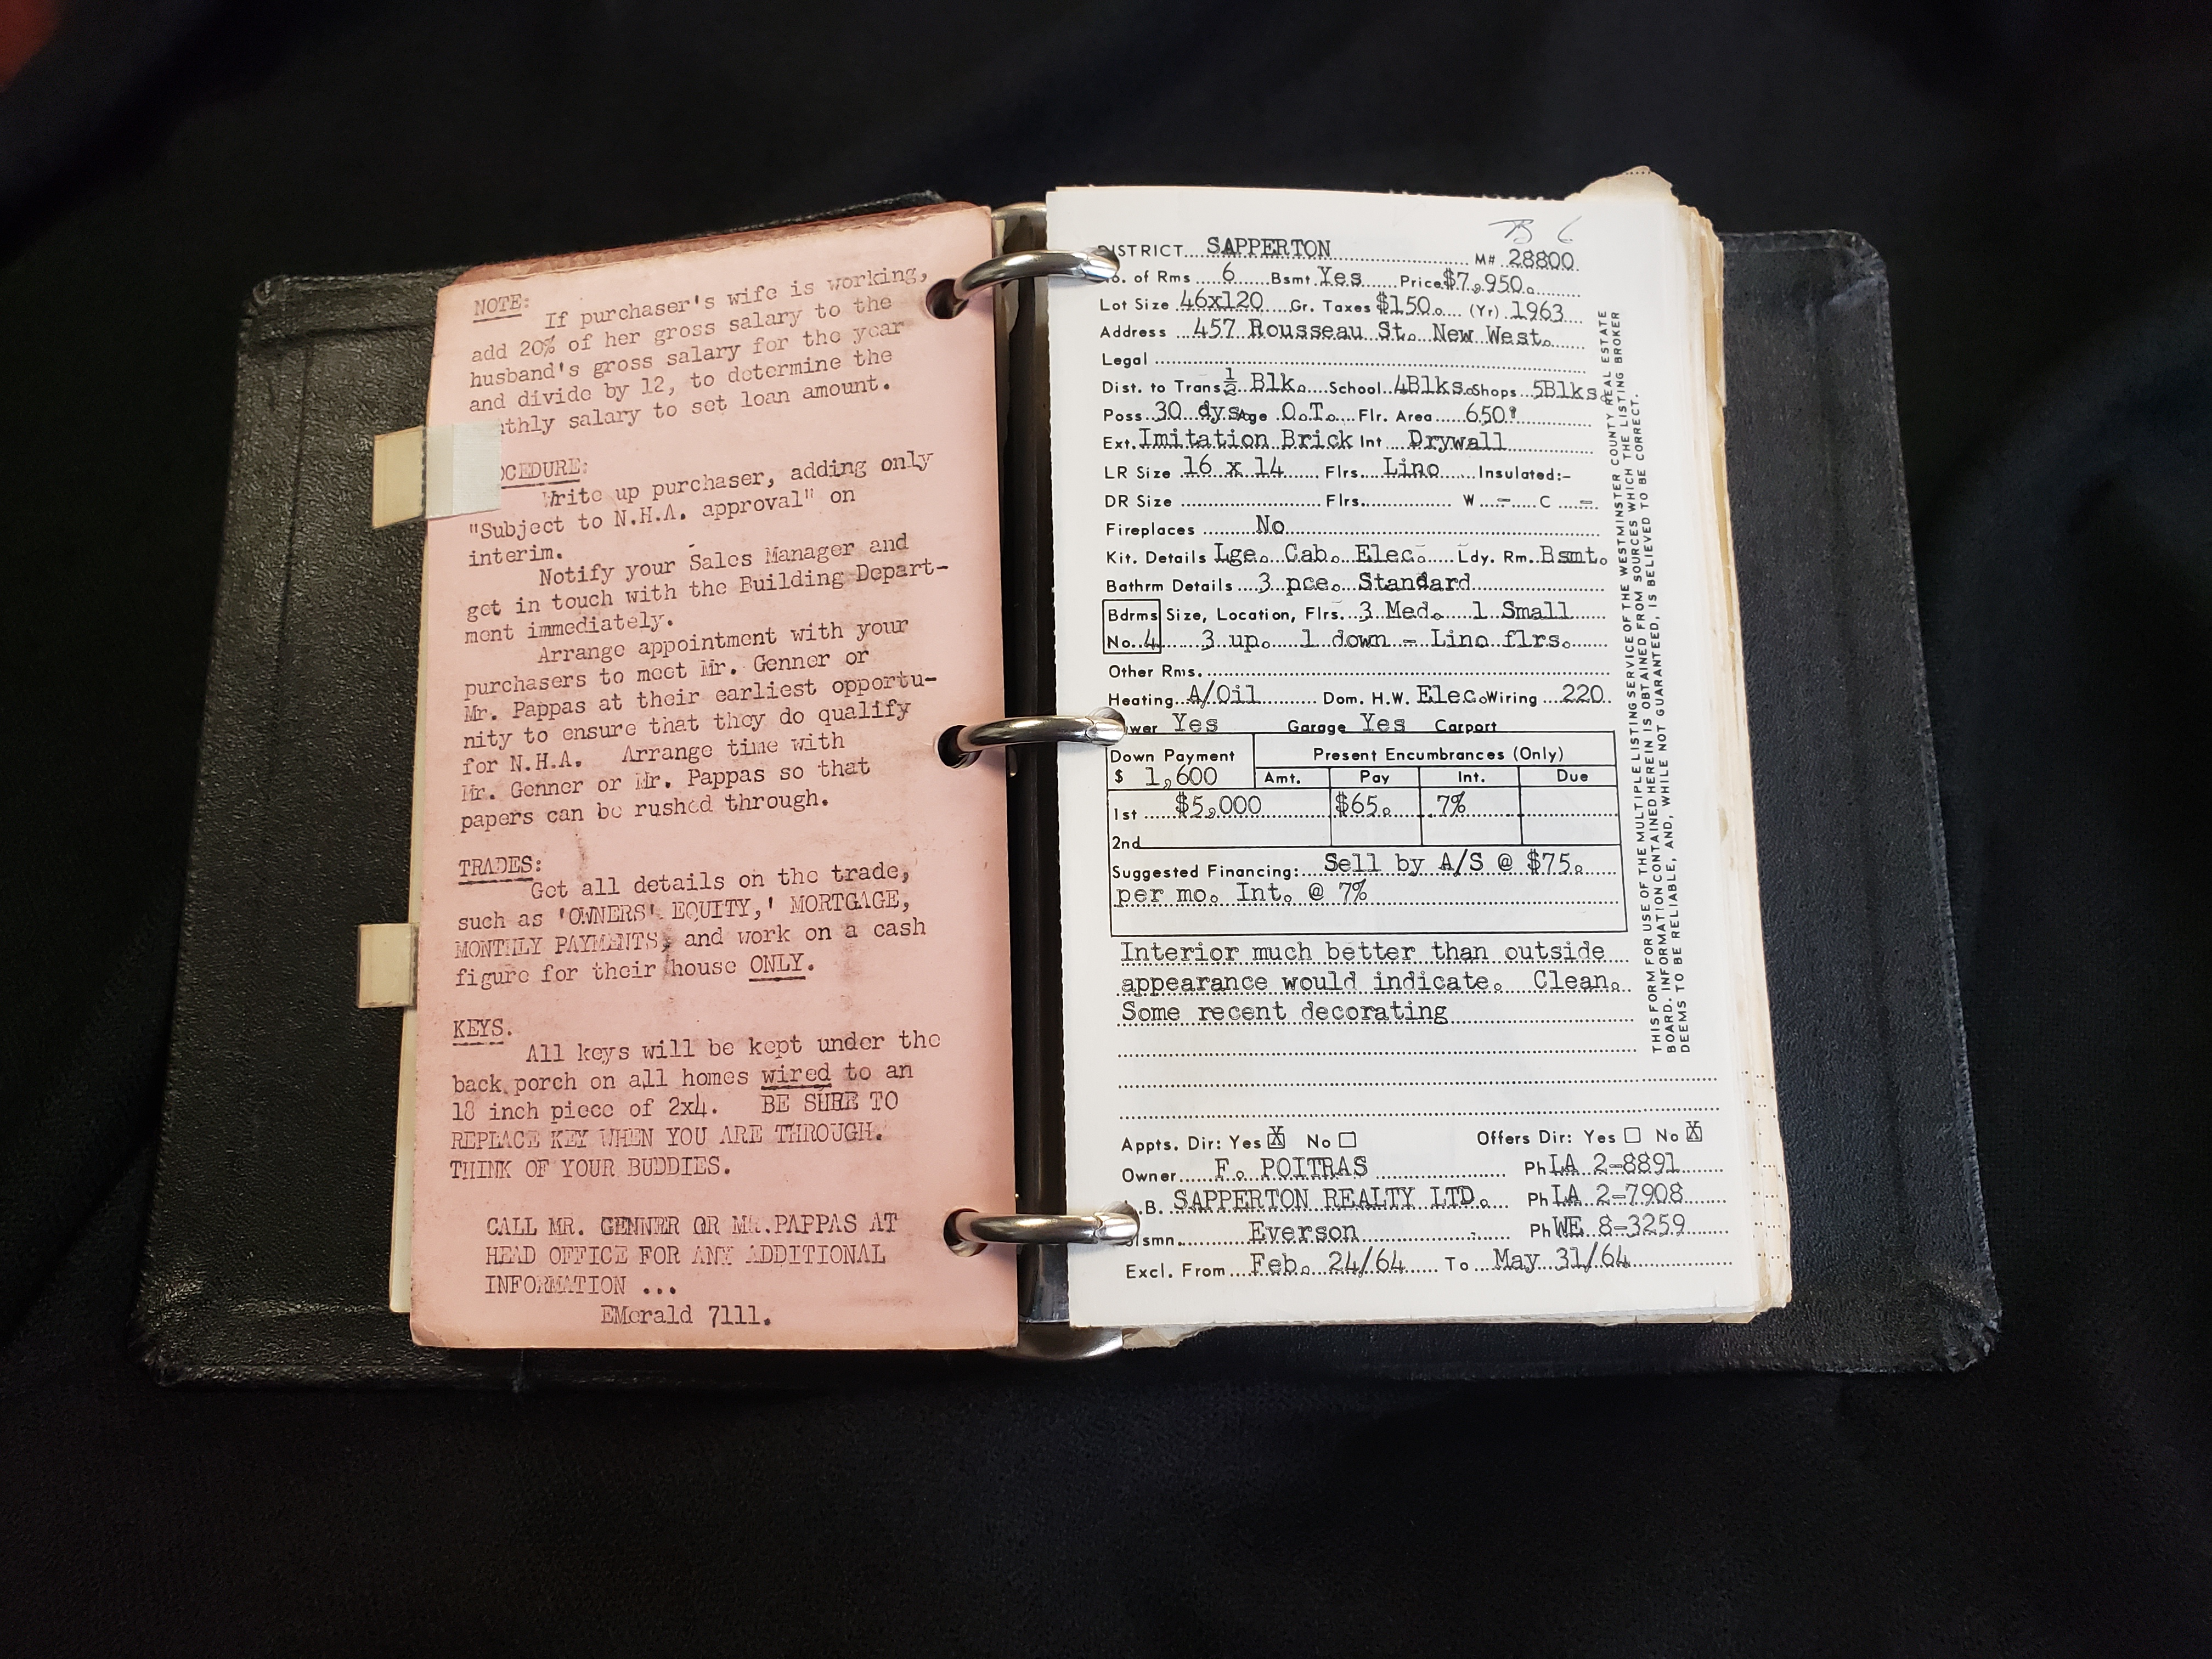 NOTE:
If purchaser's wife is working,
add 20% of her gross salary to the
husband's gross salary for the year
and divide by 12, to determine the
thly salary to set loan amount.
OCEDURE:
Write up purchaser, adding only
"Subject to N.H.A. approval" on
interim.
Notify your Sales Manager and
get in touch with the Building Depart-
ment immediately.
Arrange appointment with your
purchasers to meet Mr. Genner or
Mr. Pappas at their earliest opportu-
nity to ensure that they do qualify
for N.H.A. Arrange time with
Mr. Genner or Mr. Pappas so that
papers can be rushed through.
TRADES:
Get all details on the trade,
such as 'OWNERS' EQUITY,' MORTGAGE,
MONTHLY PAYMENTS, and work on a cash
figure for their house ONLY.
KEYS.
All keys will be kept under the
back porch on all homes wired to an
18 inch piece of 2x4. BE SURE TO
REPLACE KEY WHEN YOU ARE THROUGH.
THINK OF YOUR BUDDIES.
CALL MR. GENNER OR MR.PAPPAS AT
HEAD OFFICE FOR ANY ADDITIONAL
INFORMATION ...
EMerald 7111.
DISTRICT SAPPERTON M# 28800
o. of Rms 6 Bsmt Yes Price $7,950.
Lot Size 46x120 Gr. Taxes $150. (Yr) 1963
Address 457 Rousseau St. New West.
Legal
Dist. to Trans ½ Blk. School 4Blks. Shops 5Blks.
Poss 30 dys. Age O.T. Flr. Area 650'
Ext. Imitation Brick Int Drywall
LR Size 16 x 14 Flrs. Lino Insulated:-
DR Size Flrs. W - C -
Fireplaces No
Kit. Details Lge. Cab. Elec. Ldy. Rm. Bsmt.
Bathrm Details 3 pce. Standard
Bdrms Size, Location, Flrs. 3 Med. 1 Small
No. 4 3 up. 1 down - Lino flrs.
Other Rms.
Heating A/Oil Dom. H.W. Elec. Wiring 220
wer Yes Garage Yes Carport
Down Payment Present Encumbrances (Only)
$ 1,600 Amt. Pay Int. Due
1st $5,000 $65. 7%
2nd
Suggested Financing: Sell by A/S @ $75.
per mo. Int. @ 7%
Interior much better than outside
appearance would indicate. Clean.
Some recent decorating
Appts. Dir: Yes X No Offers Dir: Yes No X
Owner F. POITRAS Ph LA 2-8891
.B. SAPPERTON REALTY LTD. Ph LA 2-7908
lsmn. Everson Ph WE 8-3259
Excl. From Feb. 24/64 To May 31/64
THIS FORM FOR USE OF THE MULTIPLE LISTING SERVICE OF THE WESTMINSTER COUNTY REAL ESTATE
BOARD. INFORMATION CONTAINED HEREIN IS OBTAINED FROM SOURCES WHICH THE LISTING BROKER
DEEMS TO BE RELIABLE, AND, WHILE NOT GUARANTEED, IS BELIEVED TO BE CORRECT.